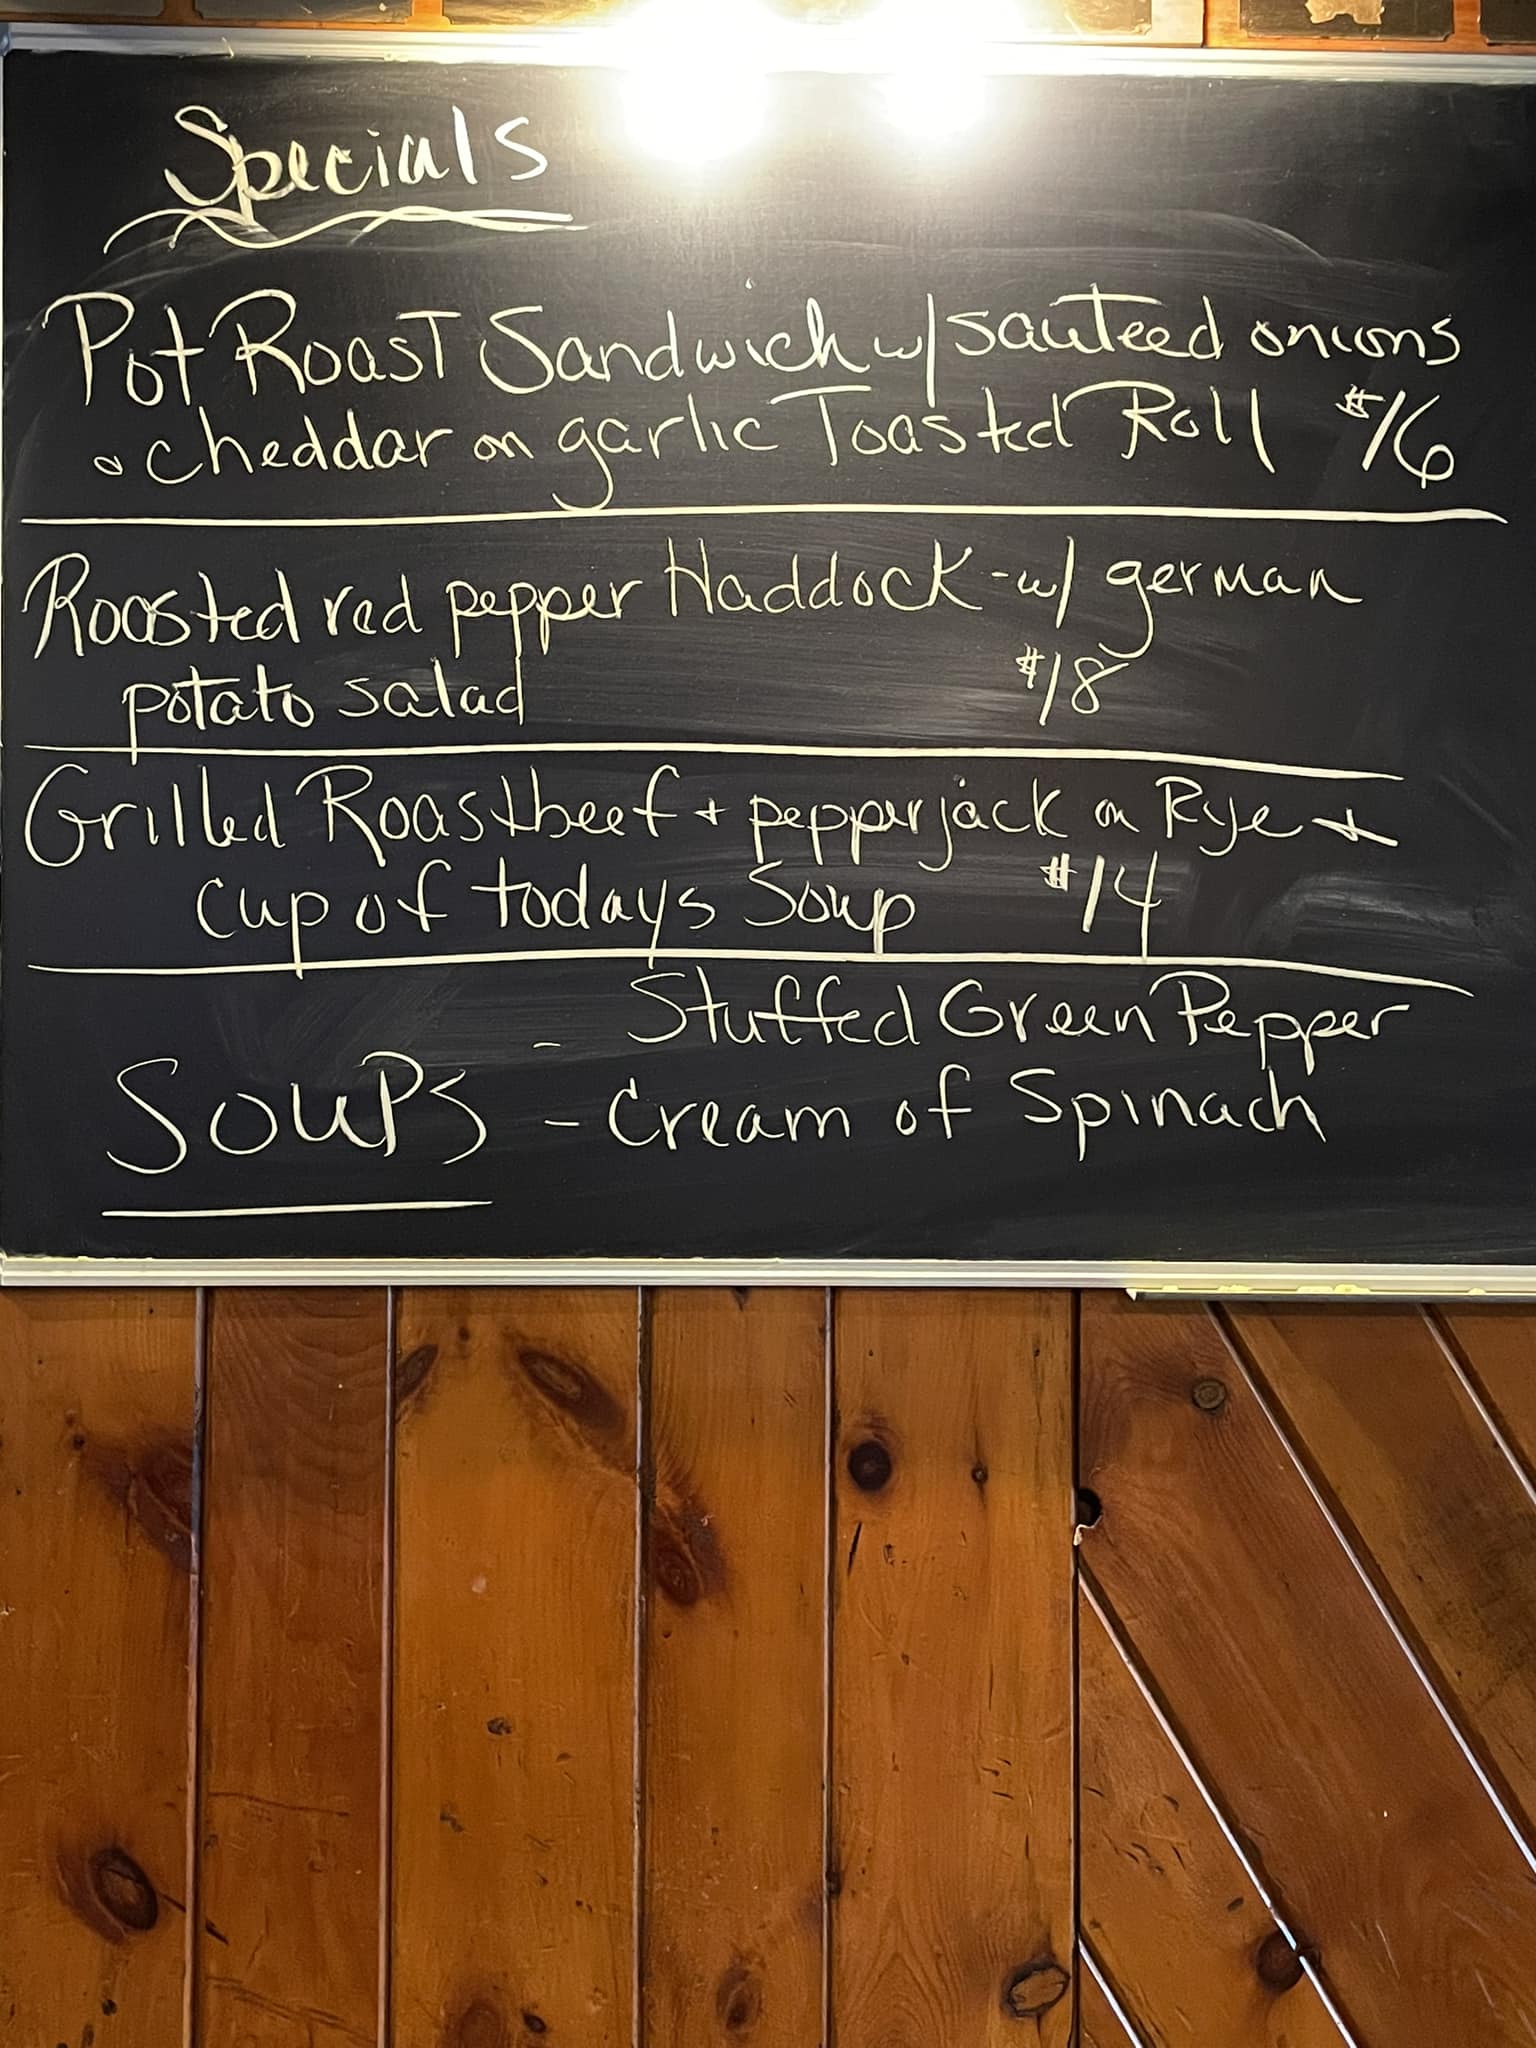 Specials
Pot Roast Sandwich w/ sauteed onions
& cheddar on garlic Toasted Roll $16
Roasted red pepper Haddock - w/ german
potato salad $18
Grilled Roastbeef + pepperjack on Rye +
cup of todays Soup $14
- Stuffed Green Pepper
Soups - Cream of Spinach